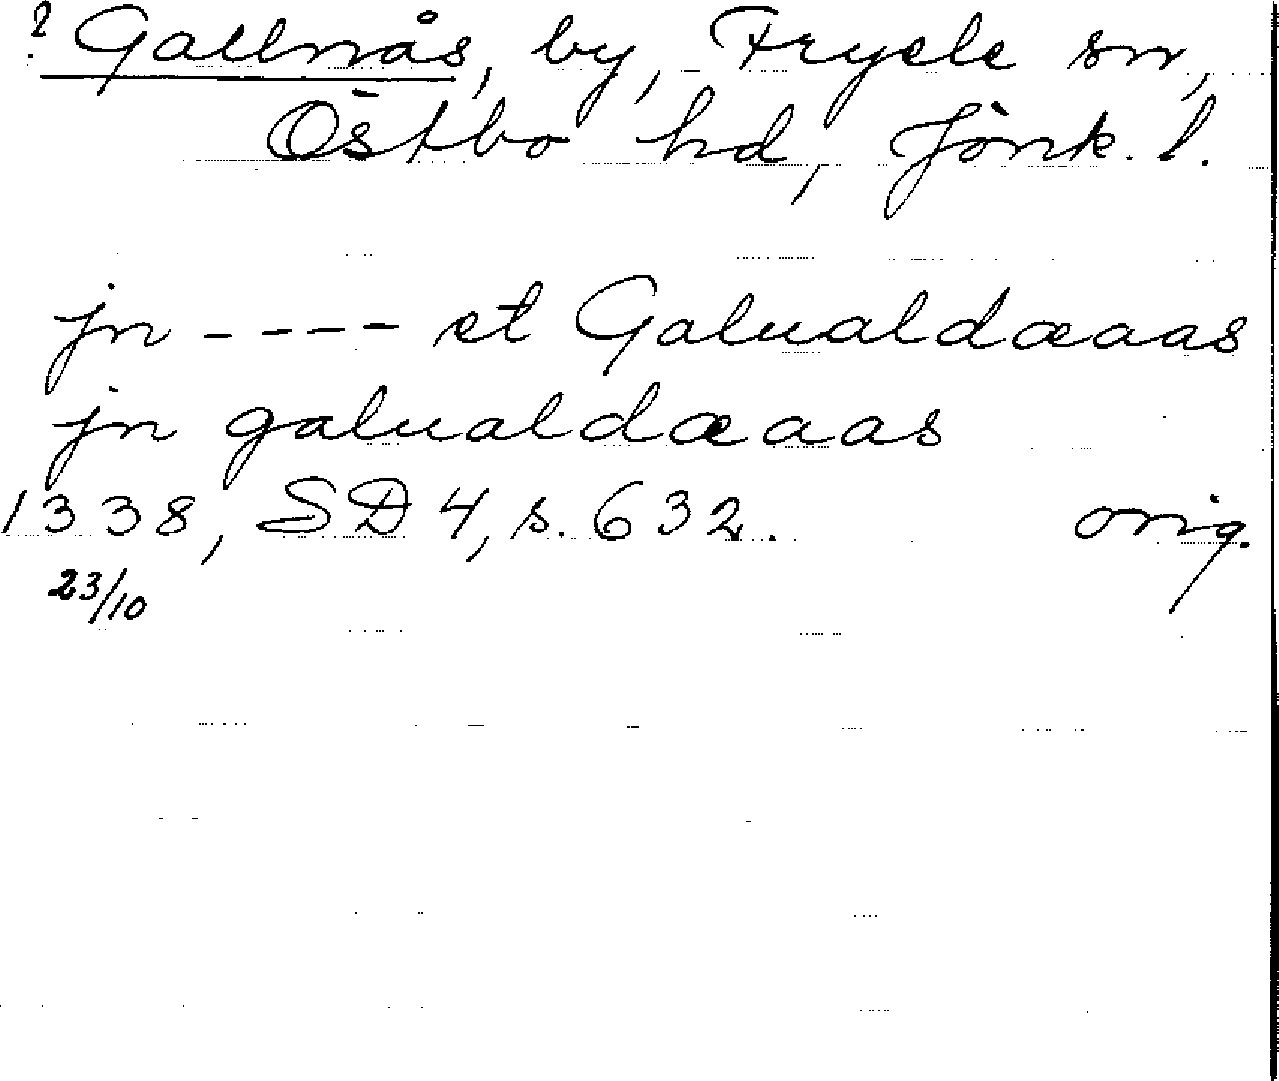 ? Gallnås, by, Fryele sn,
Östbo hd, Jönk. l.
jn ---- et Galualdæaas
jn galualdæaas
1338, SD 4, s. 632. orig.
23/10